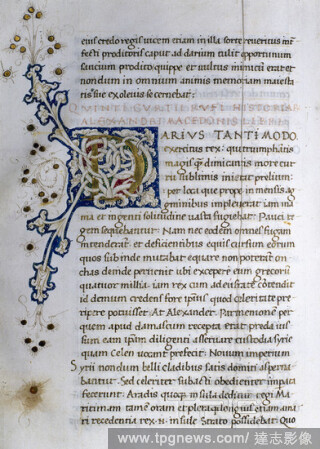 eius credo regis vicem etiam in illa sorte reveritus inter
fecti proditoris caput ad darium tulit opportunum
suscium prodito quippe et vltius inimici erat et
nondum in omnium animis memoriam maiesta
tis sue exolevisse cernebat:
QUINTI CURTII RUFI HISTORIAE
ALEXANDRI MACEDONIS LIBER
DARIUS TANTI MODO
exercitus rex: qui triumphatis
magis quam dimicantis more curru
sublimis inierat prelium:
per loca que prope immensis ag
minibus impleverat iam ina
nia et ingenti solitudine vasta fugiebat. Pauci re
gem sequebantur. Nam nec eodem omnes fugam
intenderant: et deficientibus equis cursum eorum
quos subinde mutabat equare non poterant.
chas deinde pervenit ubi excepere eum grecorum
quatuor millia: iam rex cum ad eufratem contendit
id demum credens fore ipsius quod celeritate pre
ripere potuisset. At Alexander. Parmenionem per
quem apud damascum recepta erat preda ius
sum eam ipsam diligenti asservare custodia syrie
quam celen vocant prefecit. Novum imperium
Syrii nondum belli cladibus satis domiti asperna
bantur. Sed celeriter subacti obedienter impata
fecerunt. Aradis quoque insula deditur regi Ma
ritimam tamen oram et pleraque longius etiam a mari
recedentia rex insule Strato possidebat. Quo
www.tpgnews.com / 達志影像